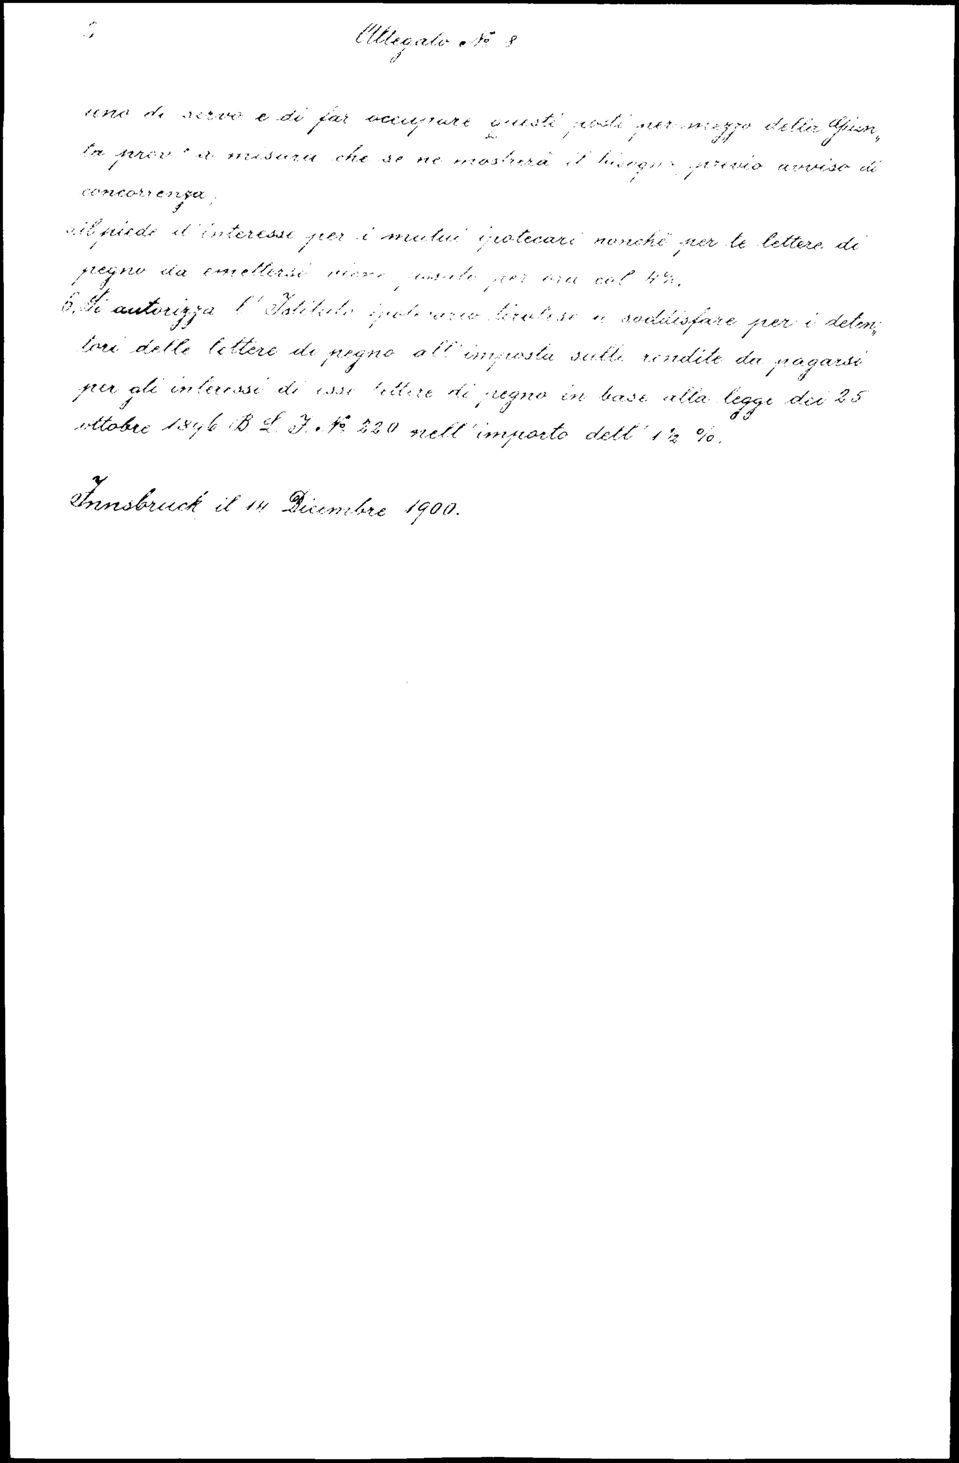 Allegato No 8
uno di servo e di far occupare questi posti per mezzo della Giun„
ta prov.e a misura che se ne mostrerà il bisogno previo avviso di
concorrenza;
il piede d'interesse per i mutui ipotecari nonchè per le lettere di
pegno da emettersi viene fissato per ora col 4%.
6. Si autorizza l'Istituto ipotecario tirolese a soddisfare per i deten„
tori delle lettere di pegno all'imposta sulle rendite da pagarsi
per gli interessi di esse lettere di pegno in base alla legge dei 25
ottobre 1896 B. L. I. No 220 nell'importo dell' 1½ %.
Innsbruck il 14 Dicembre 1900.